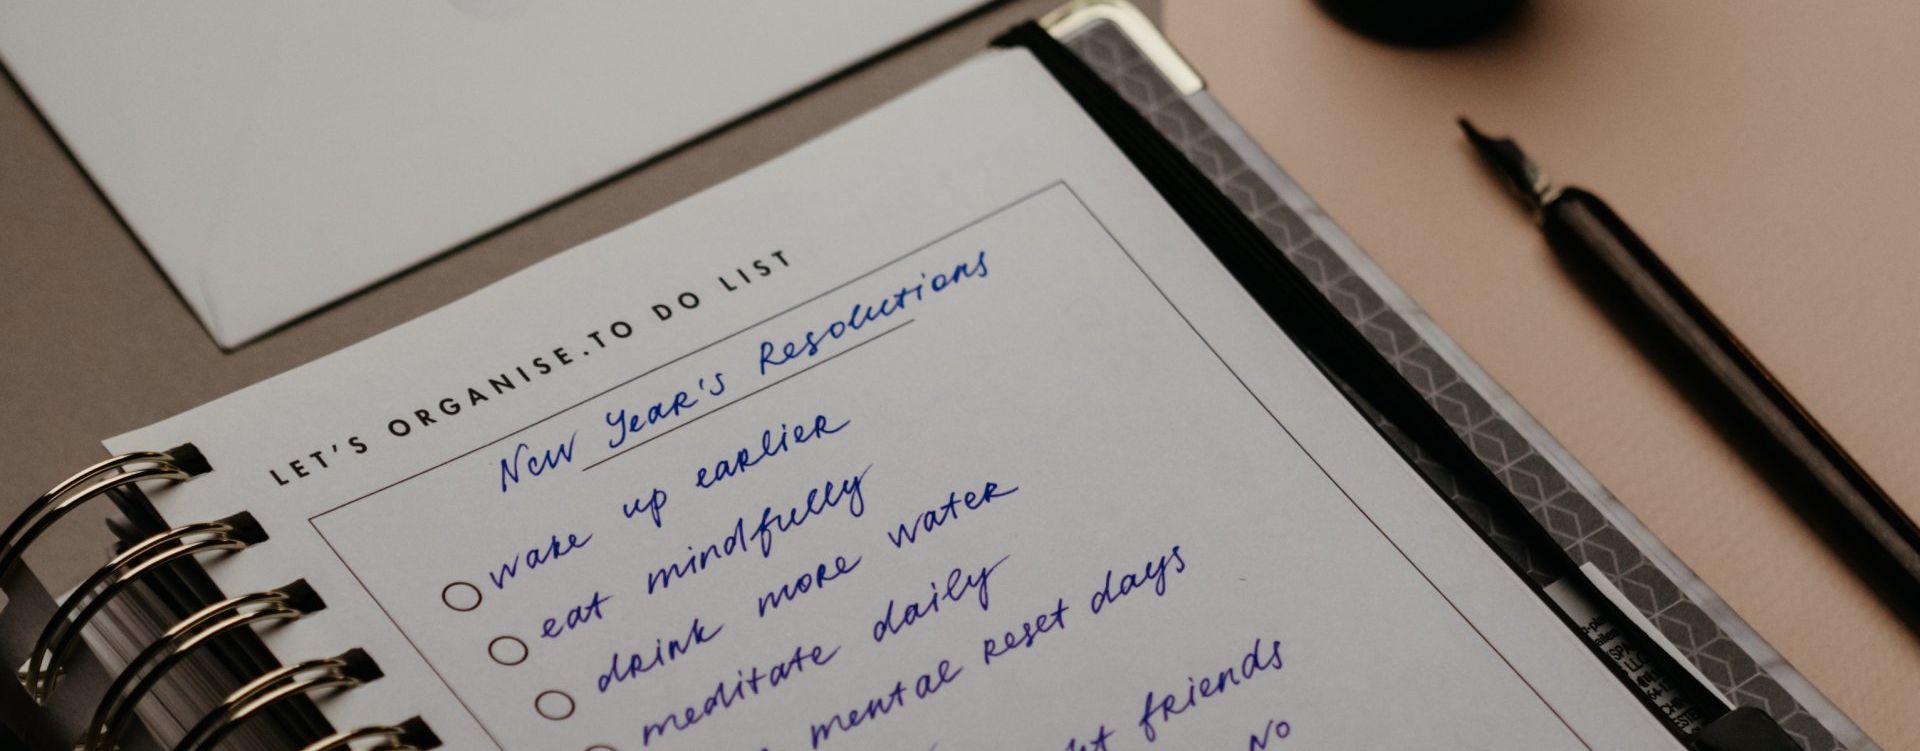 LET'S ORGANISE.TO DO LIST
New Year's Resolutions
wake up earlier
eat mindfully
drink more water
meditate daily
mental reset days
friends
No